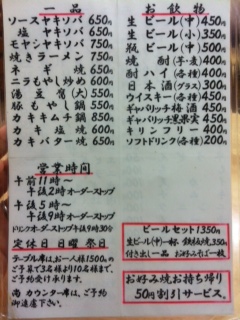 一品
ソースヤキソバ 650円
塩 ヤキソバ 650円
モヤシヤキソバ 750円
焼きラーメン 750円
ネギ 焼 650円
ニラもやし炒め 600円
湯豆腐(大) 550円
豚もやし鍋 550円
カキキムチ鍋 850円
カキ塩焼 600円
カキバター焼 650円
営業時間
午前11時〜
午後2時オーダーストップ
午後5時〜
午後9時オーダーストップ
ドリンクオーダーストップ午後9時30分
定休日 日曜 祭日
テーブル席は、お一人1500円の
ご予算で3名より10名様まで、
ご予約受け承ります。
尚 カウンター席は、ご予約
御遠慮下さい。
お飲物
生ビール(中) 450円
生ビール(小) 350円
瓶ビール(中) 500円
焼酎(芋・麦) 400円
酎ハイ(各種) 400円
日本酒(グラス) 300円
ウイスキー(各種) 450円
ギャバリッチ梅酒 450円
ギャバリッチ黒果実 450円
キリンフリー 400円
ソフトドリンク(各種) 200円
ビールセット1350円
生ビール(中)一杯、鉄板焼
付き出し一品 お好み一枚
お好み焼お持ち帰り
50円割引サービス。